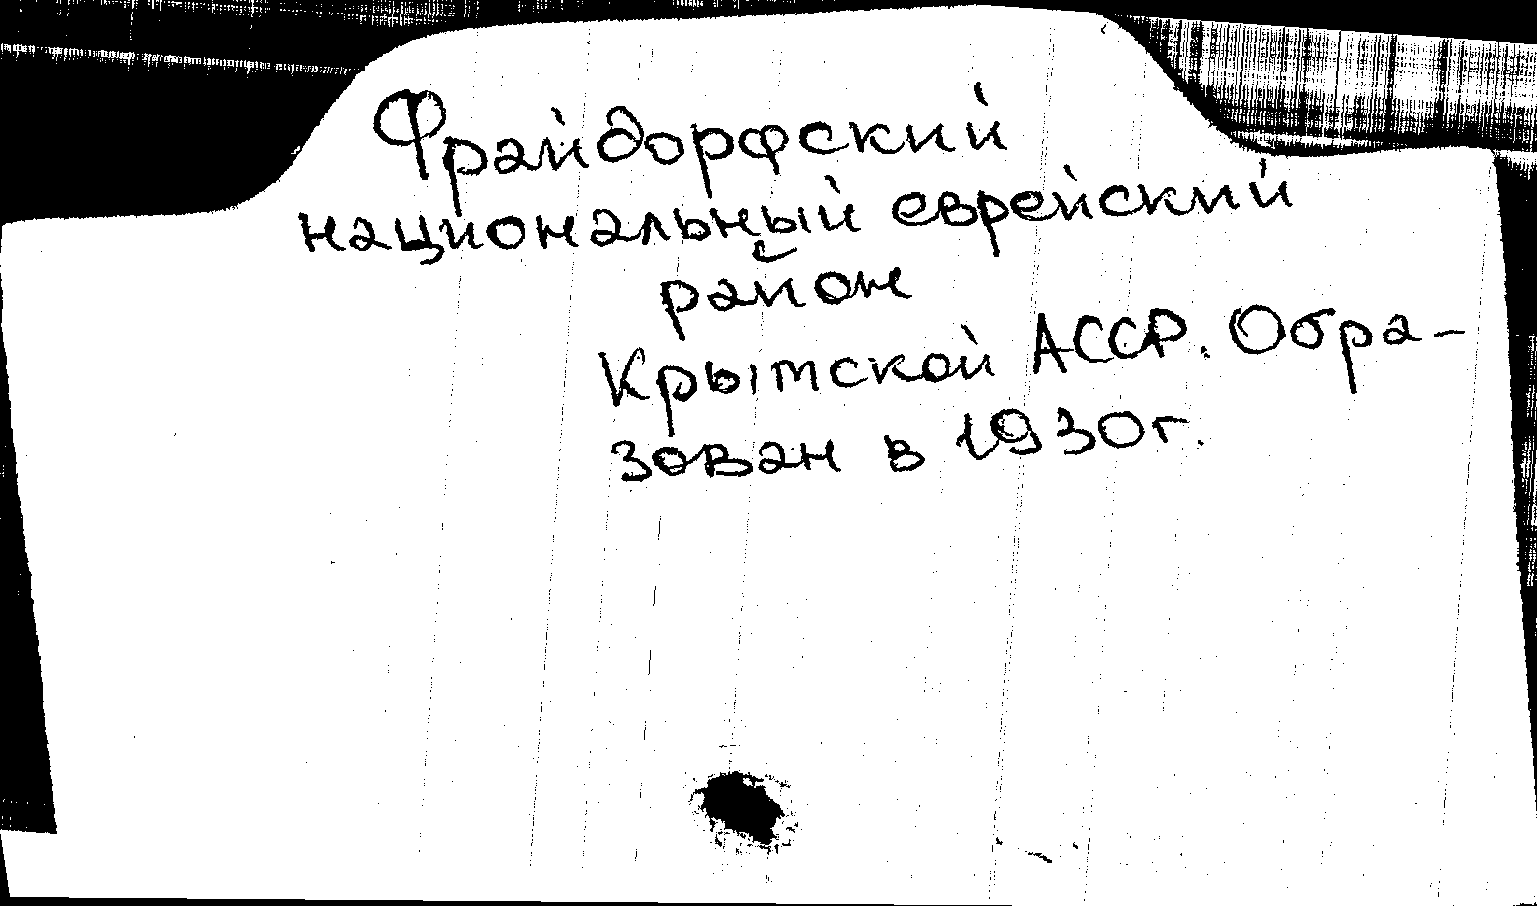 Фрайдорфский
национальный еврейский
район
Крымской АССР. Обра-
зован в 1930г.